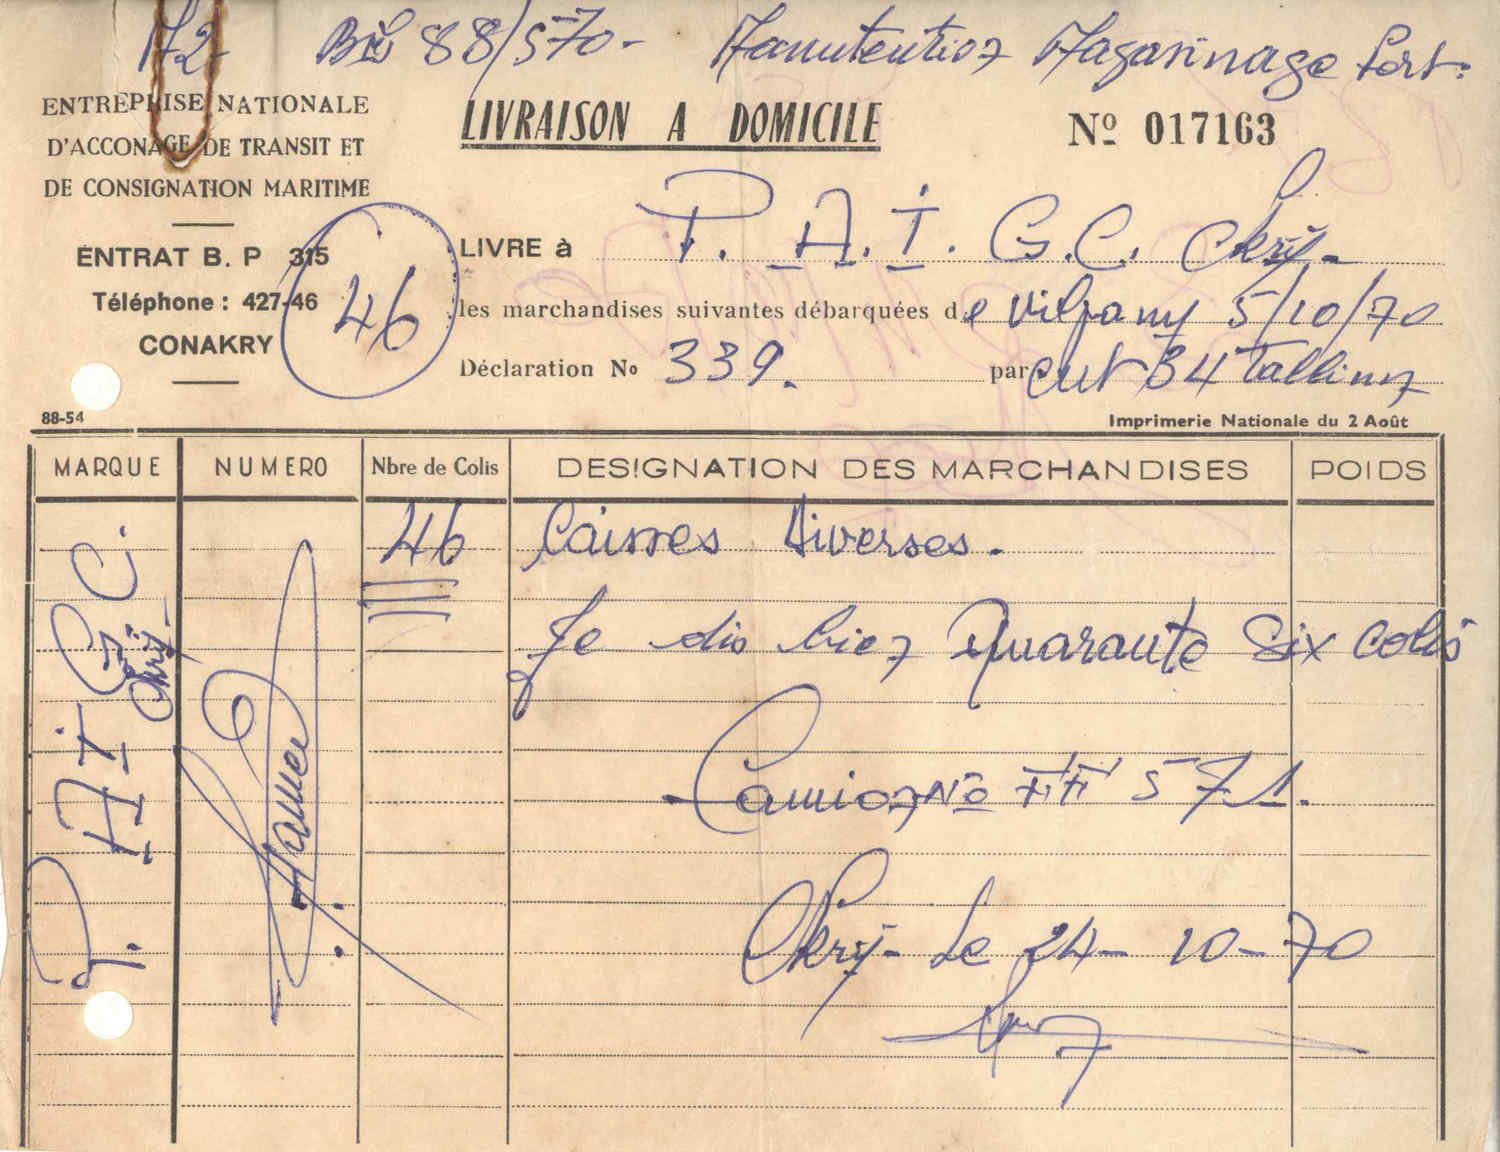 A2 Bis 88/570- Manutention Magasinage Port.
ENTREPRISE NATIONALE
D'ACCONAGE DE TRANSIT ET
DE CONSIGNATION MARITIME
LIVRAISON A DOMICILE
Nº 017163
ENTRAT B. P 315
Téléphone : 427-46
CONAKRY
46
LIVRE à P.A.I.G.C. Ckry-
les marchandises suivantes débarquées de Vilpamy 5/10/70
Déclaration No 339. par cut 34 Tallinn
88-54
Imprimerie Nationale du 2 Août
MARQUE NUMERO Nbre de Colis DESIGNATION DES MARCHANDISES POIDS
P.AIGC.
Ckry-
46 Caisses Diverses.
Je dis bien Quarante Six colis
Camion No 571.
Ckry- Le 24-10-70